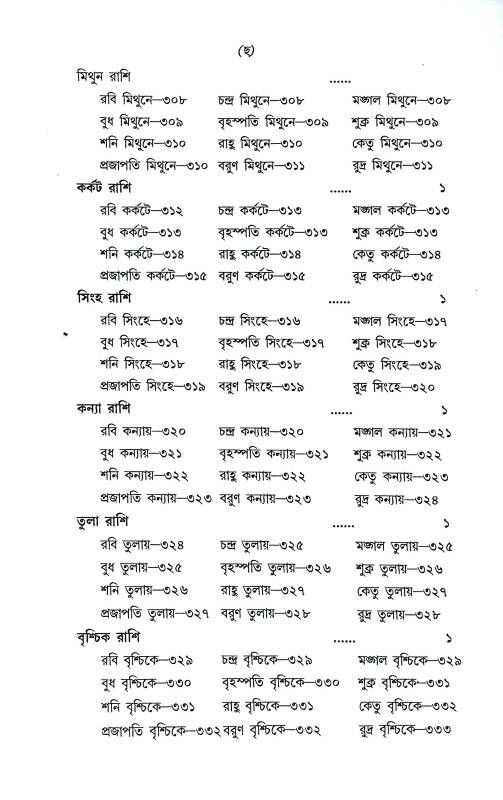 (ছ)
মিথুন রাশি ......
রবি মিথুনে—৩০৮ চন্দ্র মিথুনে—৩০৮ মঙ্গল মিথুনে—৩০৮
বুধ মিথুনে—৩০৯ বৃহস্পতি মিথুনে—৩০৯ শুক্র মিথুনে—৩০৯
শনি মিথুনে—৩১০ রাহু মিথুনে—৩১০ কেতু মিথুনে—৩১০
প্রজাপতি মিথুনে—৩১০ বরুণ মিথুনে—৩১১ রুদ্র মিথুনে—৩১১
কর্কট রাশি ...... ১
রবি কর্কটে—৩১২ চন্দ্র কর্কটে—৩১৩ মঙ্গল কর্কটে—৩১৩
বুধ কর্কটে—৩১৩ বৃহস্পতি কর্কটে—৩১৩ শুক্র কর্কটে—৩১৩
শনি কর্কটে—৩১৪ রাহু কর্কটে—৩১৪ কেতু কর্কটে—৩১৪
প্রজাপতি কর্কটে—৩১৫ বরুণ কর্কটে—৩১৫ রুদ্র কর্কটে—৩১৫
সিংহ রাশি ...... ১
রবি সিংহে—৩১৬ চন্দ্র সিংহে—৩১৬ মঙ্গল সিংহে—৩১৭
বুধ সিংহে—৩১৭ বৃহস্পতি সিংহে—৩১৭ শুক্র সিংহে—৩১৮
শনি সিংহে—৩১৮ রাহু সিংহে—৩১৮ কেতু সিংহে—৩১৯
প্রজাপতি সিংহে—৩১৯ বরুণ সিংহে—৩১৯ রুদ্র সিংহে—৩২০
কন্যা রাশি ...... ১
রবি কন্যায়—৩২০ চন্দ্র কন্যায়—৩২০ মঙ্গল কন্যায়—৩২১
বুধ কন্যায়—৩২১ বৃহস্পতি কন্যায়—৩২১ শুক্র কন্যায়—৩২২
শনি কন্যায়—৩২২ রাহু কন্যায়—৩২২ কেতু কন্যায়—৩২৩
প্রজাপতি কন্যায়—৩২৩ বরুণ কন্যায়—৩২৩ রুদ্র কন্যায়—৩২৪
তুলা রাশি ...... ১
রবি তুলায়—৩২৪ চন্দ্র তুলায়—৩২৫ মঙ্গল তুলায়—৩২৫
বুধ তুলায়—৩২৫ বৃহস্পতি তুলায়—৩২৬ শুক্র তুলায়—৩২৬
শনি তুলায়—৩২৬ রাহু তুলায়—৩২৭ কেতু তুলায়—৩২৭
প্রজাপতি তুলায়—৩২৭ বরুণ তুলায়—৩২৮ রুদ্র তুলায়—৩২৮
বৃশ্চিক রাশি ...... ১
রবি বৃশ্চিকে—৩২৯ চন্দ্র বৃশ্চিকে—৩২৯ মঙ্গল বৃশ্চিকে—৩২৯
বুধ বৃশ্চিকে—৩৩০ বৃহস্পতি বৃশ্চিকে—৩৩০ শুক্র বৃশ্চিকে—৩৩১
শনি বৃশ্চিকে—৩৩১ রাহু বৃশ্চিকে—৩৩১ কেতু বৃশ্চিকে—৩৩২
প্রজাপতি বৃশ্চিকে—৩৩২ বরুণ বৃশ্চিকে—৩৩২ রুদ্র বৃশ্চিকে—৩৩৩